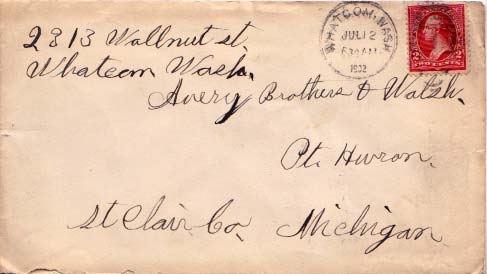 2813 Wallnut st.
Whatcom Wash.
WHATCOM, WASH
JUL 2
630 AM
1902
TWO CENTS
Avery Brothers & Walsh.
Pt. Huron.
St Clair Co. Michigan.